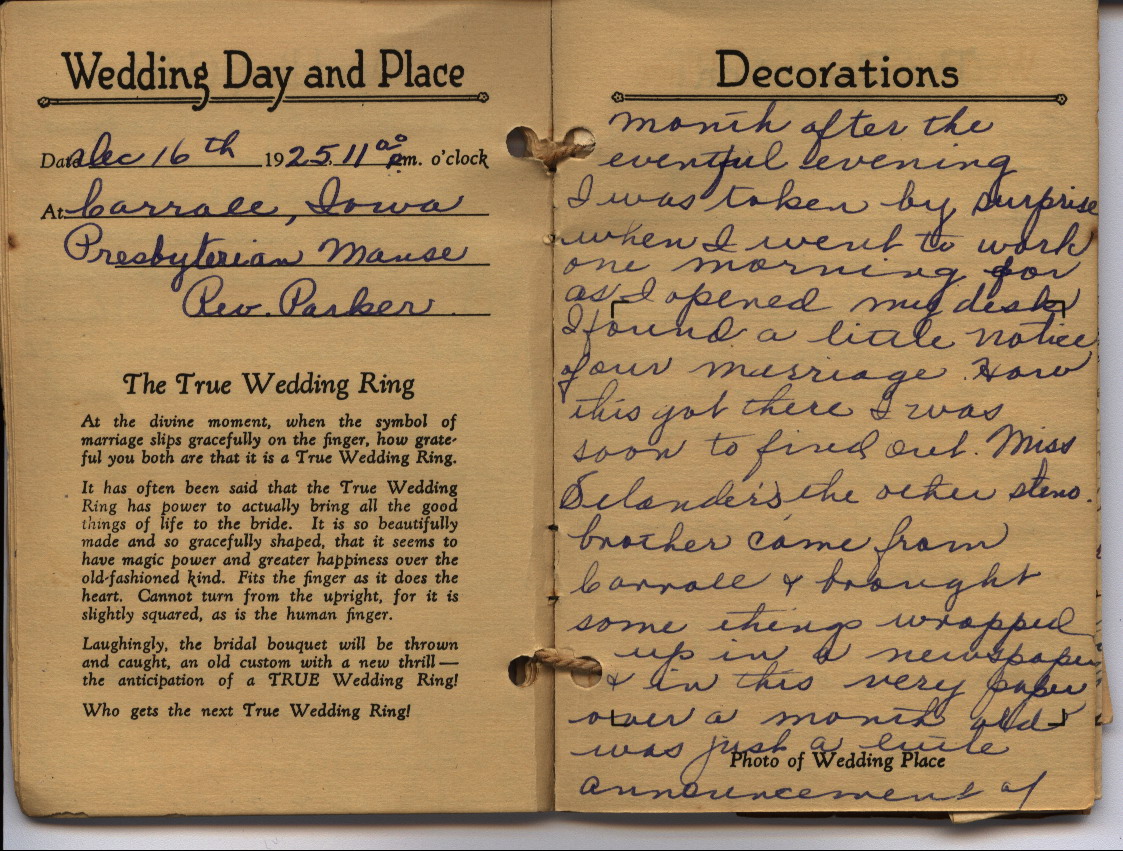 Wedding Day and Place
Date Dec 16th 1925, 11 00 a.m. o'clock
At Carroll, Iowa
Presbyterian Manse
Rev. Parker
The True Wedding Ring
At the divine moment, when the symbol of
marriage slips gracefully on the finger, how grate-
ful you both are that it is a True Wedding Ring.
It has often been said that the True Wedding
Ring has power to actually bring all the good
things of life to the bride. It is so beautifully
made and so gracefully shaped, that it seems to
have magic power and greater happiness over the
old-fashioned kind. Fits the finger as it does the
heart. Cannot turn from the upright, for it is
slightly squared, as is the human finger.
Laughingly, the bridal bouquet will be thrown
and caught, an old custom with a new thrill —
the anticipation of a TRUE Wedding Ring!
Who gets the next True Wedding Ring!
Decorations
month after the
eventful evening
I was taken by surprise
when I went to work
one morning for
as I opened my desk
I found a little notice
of our marriage. How
this got there I was
soon to find out. Miss
Selander's, the other steno.
brother came from
Carroll & brought
some things wrapped
up in a newspaper
& in this very paper
over a month old
was just a little
Photo of Wedding Place
announcement of